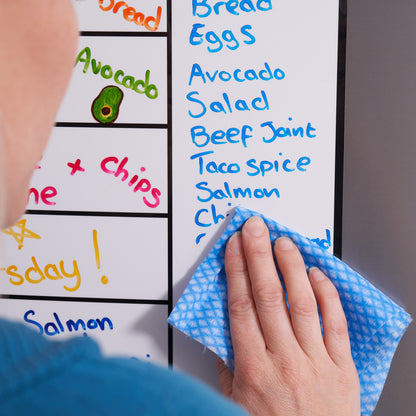 Bread
Avocado
+ Chips
sday!
Salmon
Bread
Eggs
Avocado
Salad
Beef Joint
Taco spice
Salmon